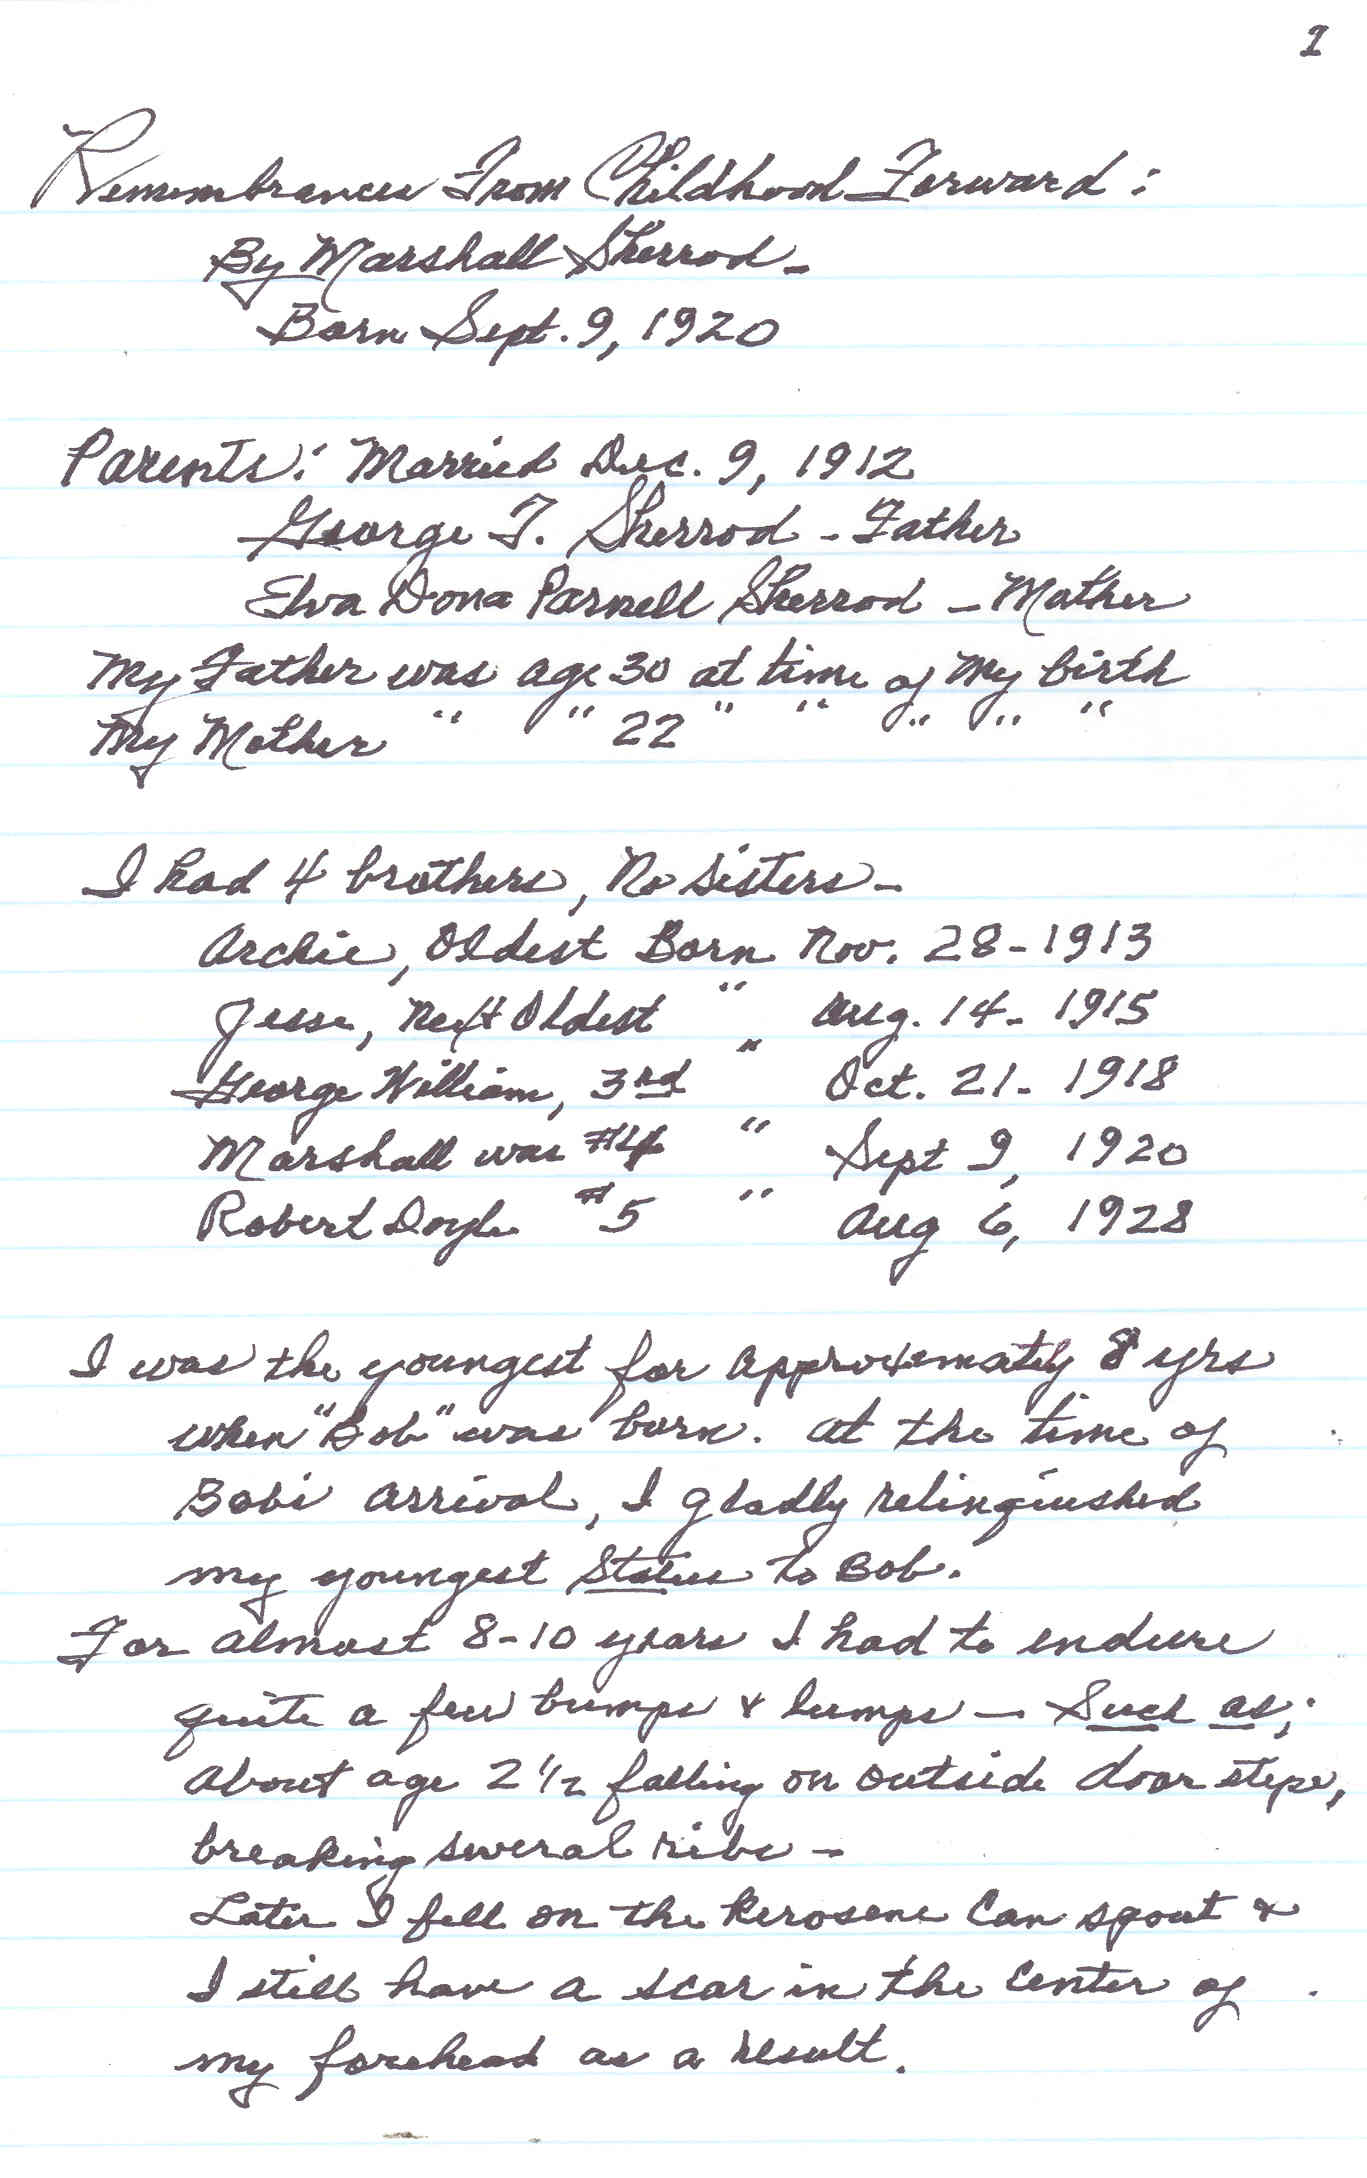 1
Remembrances From Childhood Forward:
By Marshall Sherrod -
Born Sept. 9, 1920
Parents: Married Dec. 9, 1912
George T. Sherrod - Father
Elva Dona Parnell Sherrod - Mother
My Father was age 30 at time of my birth
My Mother " " 22 " " " " "
I had 4 brothers, No Sisters -
Archie, Oldest Born Nov. 28 - 1913
Jesse, Next Oldest " Aug. 14 - 1915
George William, 3rd " Oct. 21 - 1918
Marshall was #4 " Sept 9, 1920
Robert Doyle #5 " Aug 6, 1928
I was the youngest for approximately 8 yrs
when "Bob" was born. At the time of
Bobs arrival, I gladly relinquished
my youngest Status to Bob.
For almost 8-10 years I had to endure
quite a few bumps & lumps - Such as;
About age 2 1/2 falling on outside door steps,
breaking several ribs -
Later I fell on the kerosene can spout &
I still have a scar in the center of
my forehead as a result.